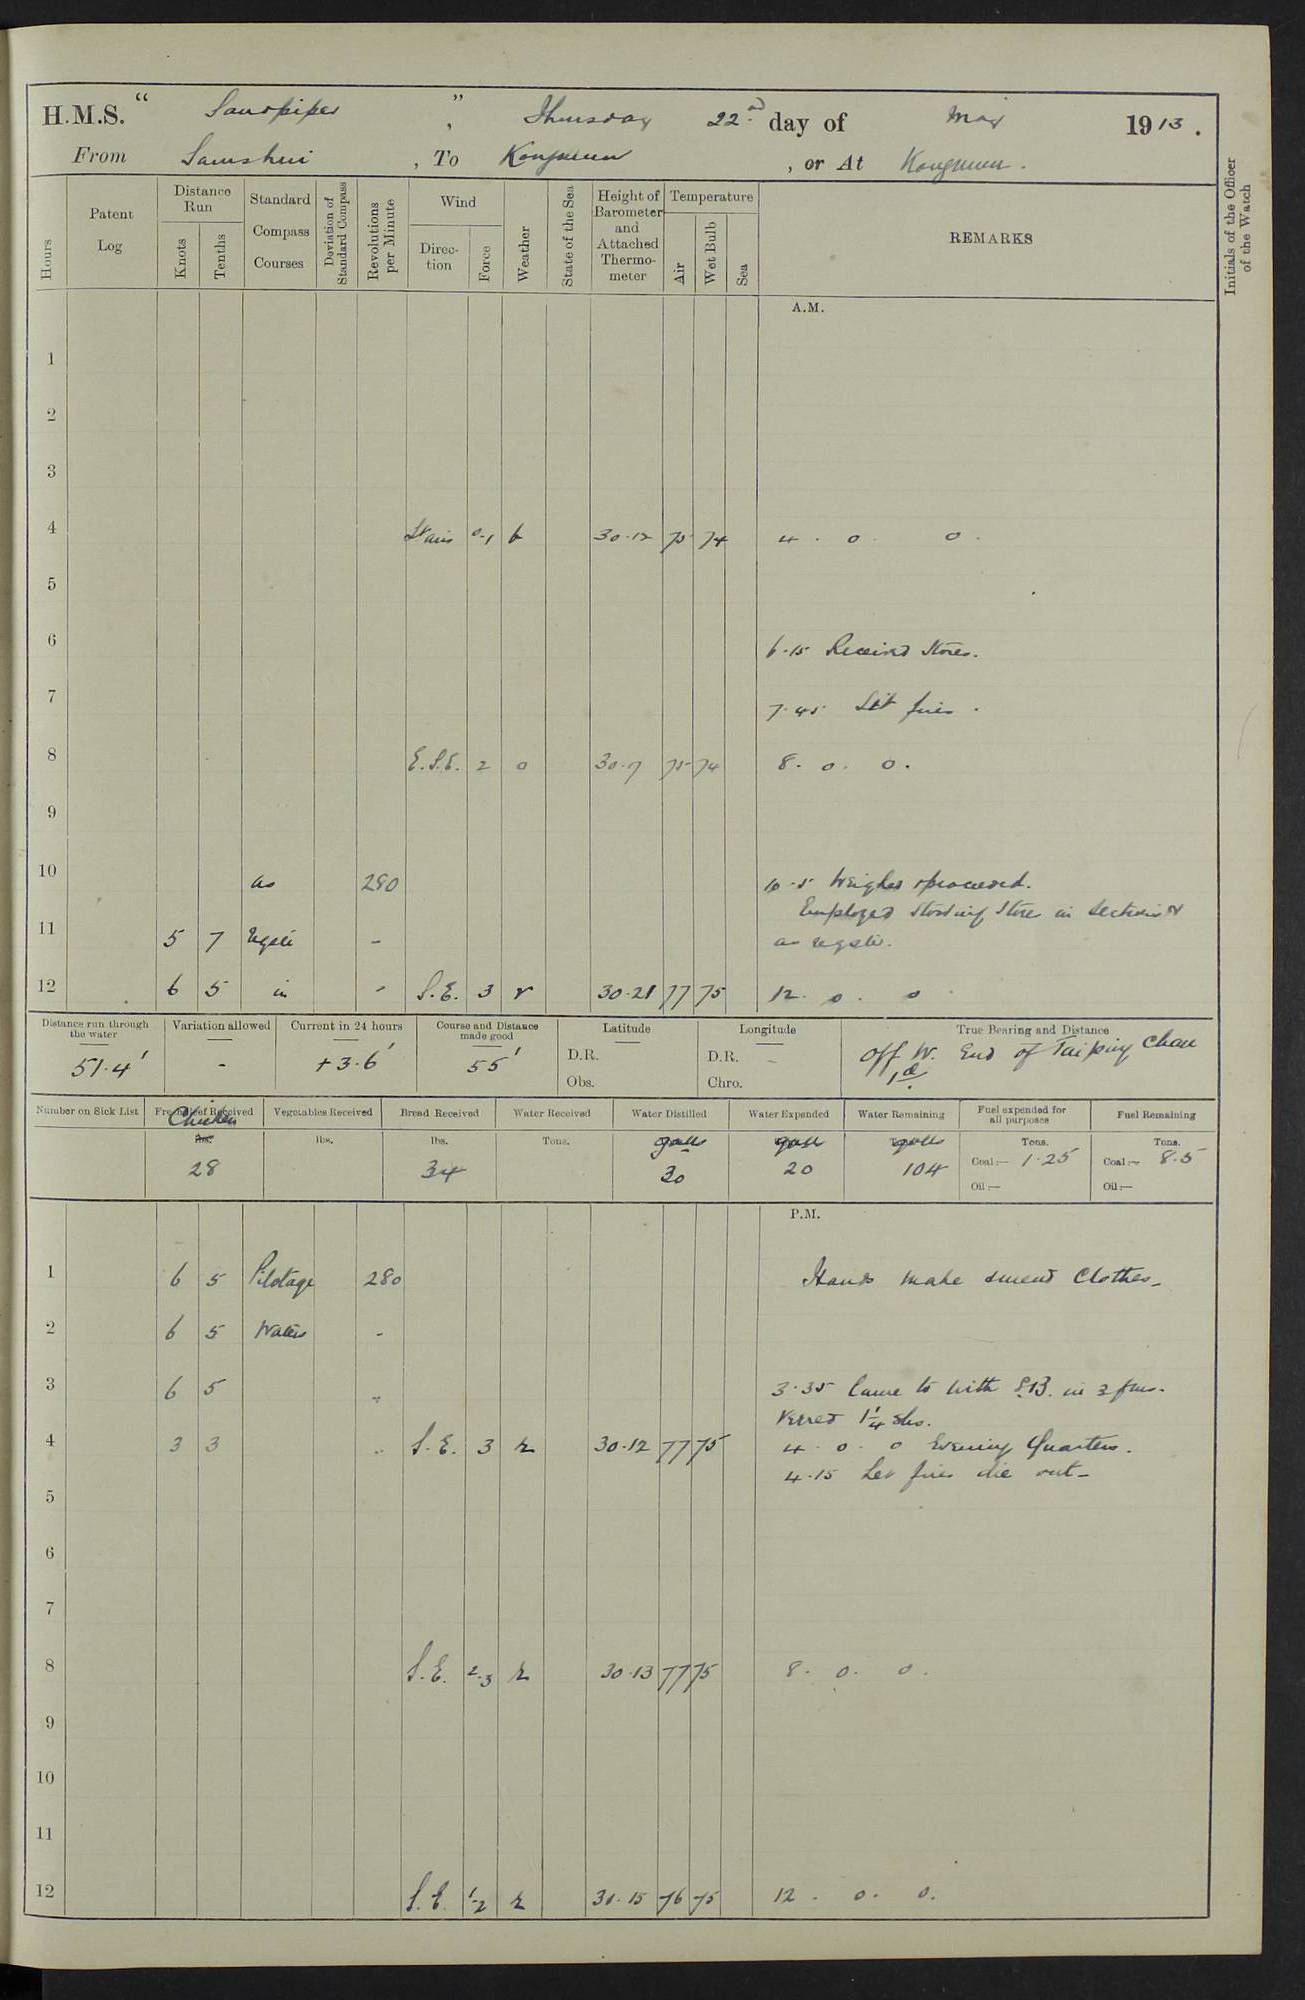 H.M.S. " Sandpiper ", Thursday 22nd day of May 1913.
From Samshui, To Kongmun, or At Kongmun.
Hours
Patent Log
Distance Run
Knots
Tenths
Standard Compass Courses
Deviation of Standard Compass
Revolutions per Minute
Wind
Direction
Force
Weather
State of the Sea
Height of Barometer and Attached Thermometer
Temperature
Air
Wet Bulb
Sea
REMARKS
Initials of the Officer of the Watch
A.M.
1
2
3
4 Lt airs 0-1 b 30.12 75 74 4 . 0 . 0 .
5
6 6.15 Received Stores.
7 7.45 Lit fires.
8 E.S.E. 2 o 30.7 75 74 8 . 0 . 0 .
9
10 as 280 10.5 Weighed & proceeded.
Employed Stowing Stores in Sections &
11 5 7 reqte - as reqte.
12 6 5 in - S.E. 3 r 30.21 77 75 12 . 0 . 0
Distance run through the water
51.4'
Variation allowed
-
Current in 24 hours
+3.6'
Course and Distance made good
55'
Latitude
D.R.
Obs.
Longitude
D.R. -
Chro.
True Bearing and Distance
Off W. End of Taiping Chau
Isd.
Number on Sick List
Fresh Beef Received
Chicken
lbs.
28
Vegetables Received
lbs.
Bread Received
lbs.
34
Water Received
Tons.
Water Distilled
galls
30
Water Expended
galls
20
Water Remaining
galls
104
Fuel expended for all purposes
Tons.
Coal:— 1.25
Oil:—
Fuel Remaining
Tons.
Coal:— 8.5
Oil:—
P.M.
1 6 5 Pilotage 280 Hands make & mend Clothes.
2 6 5 Waters -
3 6 5 " 3.35 Came to with S.B. in 3 fms.
Veered 1¼ shs.
4 3 3 " S.E. 3 r 30.12 77 75 4 . 0 . 0 Evening Quarters.
4.15 Let fires die out.
5
6
7
8 S.E. 2-3 r 30.13 77 75 8 . 0 . 0 .
9
10
11
12 S.E. 1-2 r 30.15 76 75 12 . 0 . 0 .